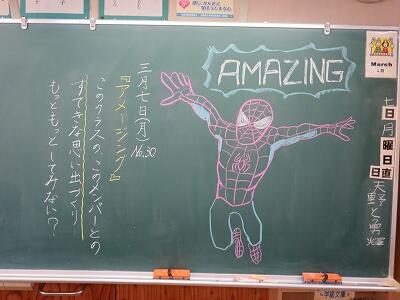 AMAZING
三月七日(月) No.30
『アメージング』
このクラスの、このメンバーとの
すてきな思い出づくり
もっともっとしてみない？
March
七日
月曜日
日直
天野
学級文庫